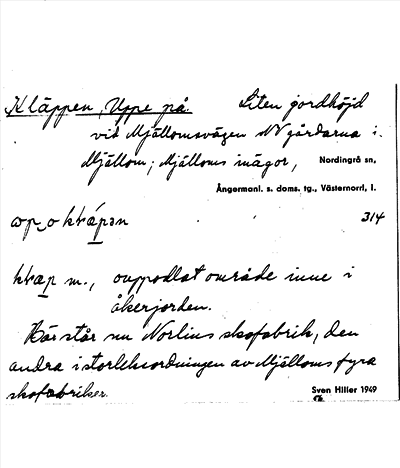 Kläppen, Uppe på. Liten jordhöjd
vid Mjällomsvägen NV gårdarna i
Mjällom; Mjälloms inägor, Nordingrå sn,
Ångermanl. s. doms. tg., Västernorrl. l.
314
m., ouppodlat område inne i
åkerjorden.
Här står nu Norlins skofabrik, den
andra i storleksordningen av Mjälloms fyra
skofabriker.
Sven Hiller 1949